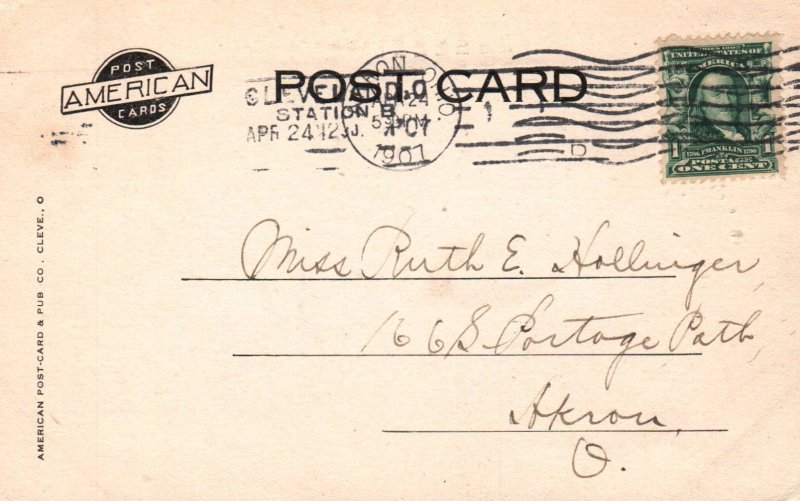 POST
AMERICAN
CARDS
POST CARD
CLEVELAND, O.
STATION B.
APR 24 12
AKRON O
APR 24
1907
SERIES 1902
UNITED STATES OF
AMERICA
FRANKLIN
POSTAGE
1 1
ONE CENT
AMERICAN POST-CARD & PUB CO. CLEVE., O
Miss Ruth E. Hollinger,
16 S. Portage Path,
Akron,
O.